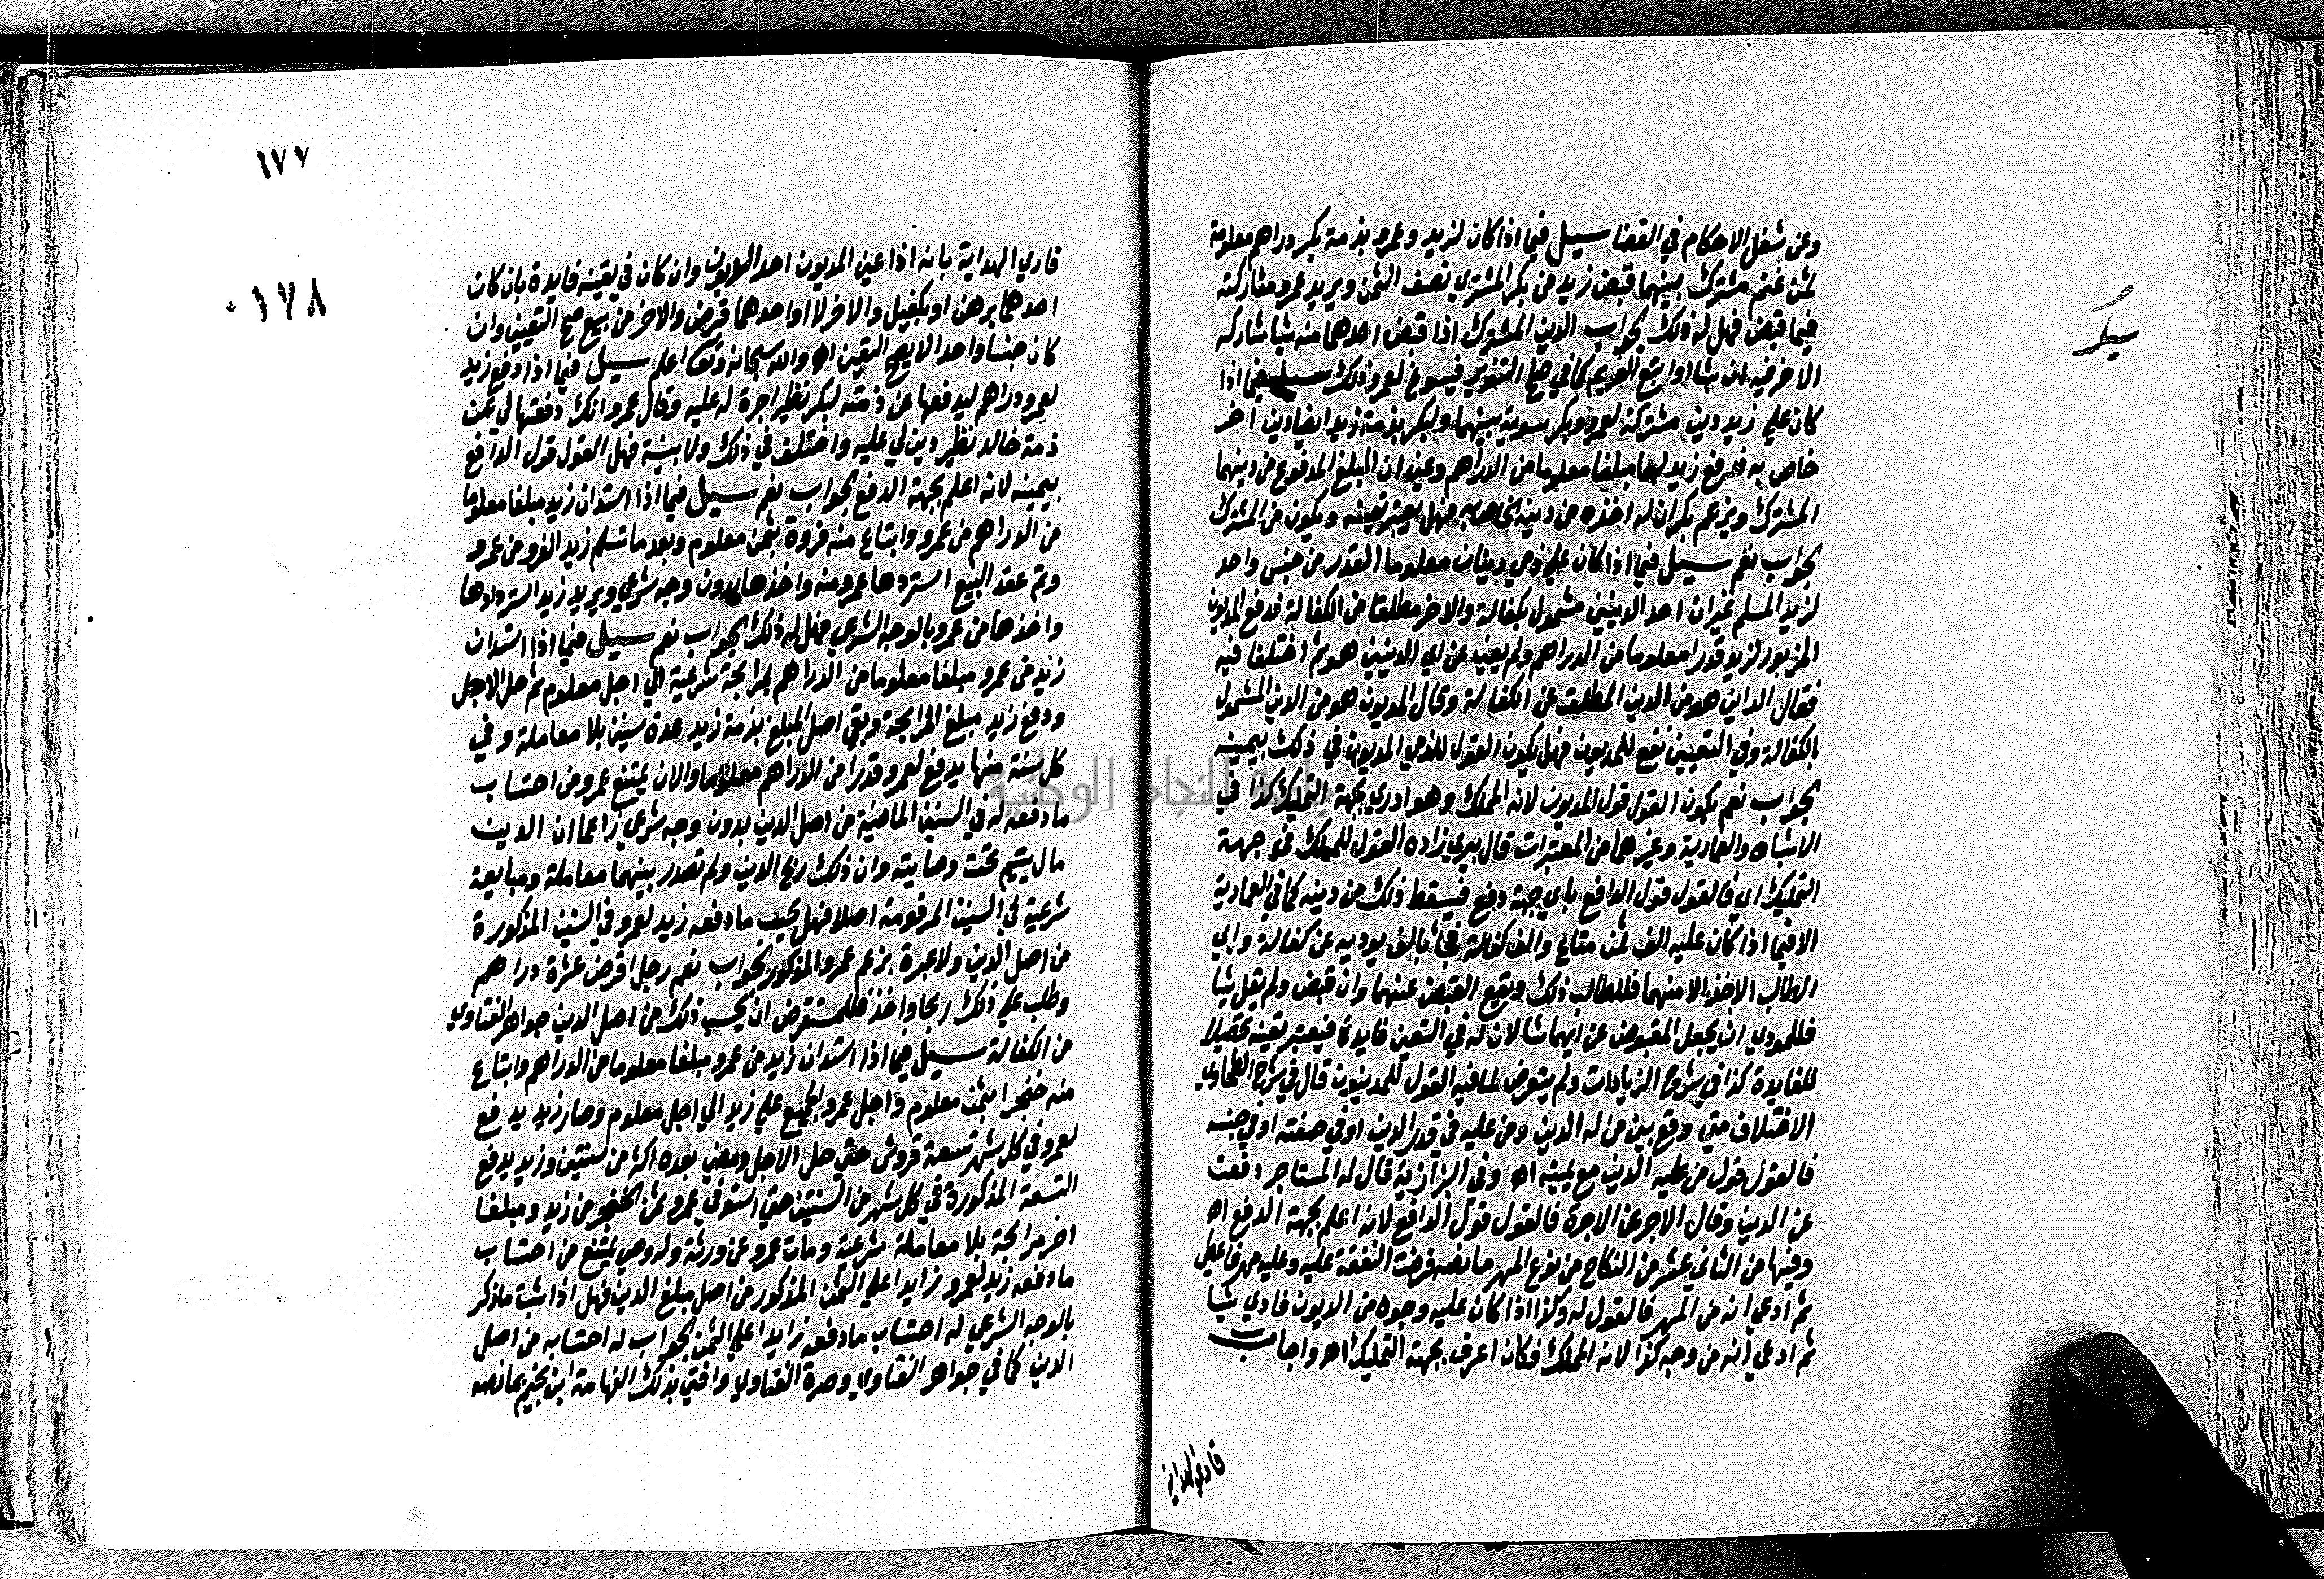 وعن شغل الاحكام في القضا سيل فيما اذا كان لزيد وعمرو بذمة بكر دراهم معلومة
ثمن غنم مشترك بينهما قبض زيد من بكر المشتري نصف الثمن ويريد عمرو مشاركته
فيما قبض فهل له ذلك الجواب الدين المشترك اذا قبض احدهما منه شيا شاركه
الاخر فيه ان شا او اتبع الغريم كما في صلح التنوير فيسوغ لعمرو ذلك سيل فيما اذا
كان على زيد دين مشترك لعمرو وبكر سوية بينهما ولبكر بذمة زيد ايضا دين اخر
خاص به فدفع زيد لهما مبلغا معلوما من الدراهم وعين ان المبلغ المدفوع من دينهما
المشترك ويزعم بكر ان له اخذه من دينه الخاص به فهل يعتبر تعيينه ويكون من المشترك
الجواب نعم سيل فيما اذا كان على ذمي دينان معلوما القدر من جنس واحد
لزيد المسلم غير ان احد الدينين مشمول بكفالة والاخر مطلقا من الكفالة فدفع المديون
المزبور لزيد قدرا معلوما من الدراهم ولم يعينه عن اي الدينين هو ثم اختلفا فيه
فقال الداين هو من الدين المطلق عن الكفالة وقال المديون هو من الدين المشمول
بالكفالة وفي التعيين نفع للمديون فهل يكون القول للذمي المديون في ذلك بيمينه
الجواب نعم يكون القول قول المديون لانه المملك وهو ادرى بجهة التمليك كذا في
الاشباه والعمادية وغيرهما من المعتبرات قال بيري زاده القول للمملك في جهة
التمليك اي فالقول قول الدافع باي جهة دفع فيسقط ذلك من دينه كما في العمادية
الا فيما اذا كان عليه الف ثمن متاع والف كفالة فجا بالف يوديه عن كفالة وابى
الطالب الاخذ الا منهما فللطالب ذلك ويقع القبض عنهما وان قبض ولم يقل شيا
فللمودي ان يجعل المقبوض عن ايهما شا لان له في التعين فايدة فيعتبر تعينه تحصيلا
للفايدة كذا في شروح الزيادات ولم يتعرض لما فيه القول للمديون قال في شرح الطحاوي
الاختلاف متى وقع بين من له الدين ومن عليه في قدر الدين او في صفته او في جنسه
فالقول قول من عليه الدين مع يمينه اه وفي البزازية قال له المستاجر دفعت
عن الدين وقال الاجر عن الاجرة فالقول قول الدافع لانه اعلم بجهة الدفع اه
وفيها من الثاني عشر من النكاح من نوع المهر ما نصه فرضت النفقة عليه وعليه مهر فاعطى
ثم ادعى انه من المهر فالقول له وكذا اذا كان عليه وجوه من الديون فادى شيا
ثم ادعى انه من وجه كذا لانه المملك فكان اعرف بجهة التمليك اه واجاب
قاري الهداية
١٧٧
١٧٨
قاري الهداية بانه اذا عين المديون احد الديون وان كان في تعينه فايدة بان كان
احدهما برهن او بكفيل والاخر لا او احدهما قرض والاخر من بيع صح التعيين وان
كان جنسا واحدا لا يصح التعين اه والله سبحانه وتعالى اعلم سيل فيما اذا دفع زيد
لعمرو دراهم ليدفعها عن ذمته لبكر نظير اجرة له عليه وقال عمرو انك دفعتها لي عن
ذمة خالد نظير دين لي عليه واختلف في ذلك ولا بينة فهل القول قول الدافع
بيمينه لانه اعلم بجهة الدفع الجواب نعم سيل فيما اذا استدان زيد مبلغا معلوما
من الدراهم من عمرو وابتاع منه فروة بثمن معلوم وبعد ما تسلم زيد الفرو من عمرو
وتم عقد البيع استردها عمرو منه واخذها بدون وجه شرعي ويريد زيد استردادها
واخذها من عمرو بالوجه الشرعي فهل له ذلك الجواب نعم سيل فيما اذا استدان
زيد من عمرو مبلغا معلوما من الدراهم بمرابحة شرعية الى اجل معلوم ثم حل الاجل
ودفع زيد مبلغ المرابحة وبقي اصل المبلغ بذمة زيد عدة سنين بلا معاملة وفي
كل سنة منها يدفع لعمرو قدرا من الدراهم معلوما والان يمتنع عمرو من احتساب
ما دفعه له في السنين الماضية من اصل الدين بدون وجه شرعي زاعما ان الدين
مال يتيم تحت وصايته وان ذلك ربح الدين ولم تصدر بينهما معاملة ومبايعة
شرعية في السنين المرقومة اصلا فهل يحسب ما دفعه زيد لعمرو في السنين المذكورة
من اصل الدين ولا عبرة بزعم عمرو المذكور الجواب نعم رجل اقرض عشرة دراهم
وطلب على ذلك ربحا واخذ فللمستقرض ان يحسب ذلك من اصل الدين جواهر الفتاوي
من الكفالة سيل فيما اذا استدان زيد من عمرو مبلغا معلوما من الدراهم وابتاع
منه خنجرا بثمن معلوم واجل عمرو الجميع على زيد الى اجل معلوم وصار زيد يدفع
لعمرو في كل شهر تسعة قروش حتى حل الاجل ومضى بعده اكثر من سنتين وزيد يدفع
التسعة المذكورة في كل شهر من السنتين حتى استوفى عمرو ثمن الخنجر من زيد ومبلغا
اخر مرابحة بلا معاملة شرعية ومات عمرو عن ورثة وله وصي يمتنع من احتساب
ما دفعه زيد لعمرو زايدا على الثمن المذكور من اصل مبلغ الدين فهل اذا ثبت ما ذكر
بالوجه الشرعي له احتساب ما دفعه زايدا على الثمن الجواب له احتسابه من اصل
الدين كما في جواهر الفتاوي وصرة الفتاوي وافتى بذلك العلامة ابن نجيم بما نصه
جامعة النجاح الوطنية